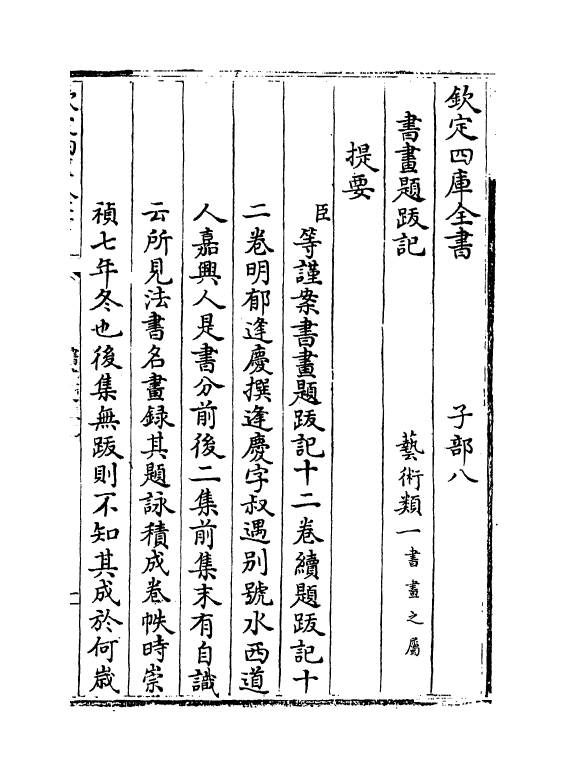 欽定四庫全書　子部八
書畫題跋記　藝術類一書畫之屬
提要
臣等謹案書畫題跋記十二卷續題跋記十
二卷明郁逢慶撰逢慶字叔遇别號水西道
人嘉興人是書分前後二集前集末有自識
云所見法書名畫録其題詠積成卷帙時崇
禎七年冬也後集無跋則不知其成於何嵗